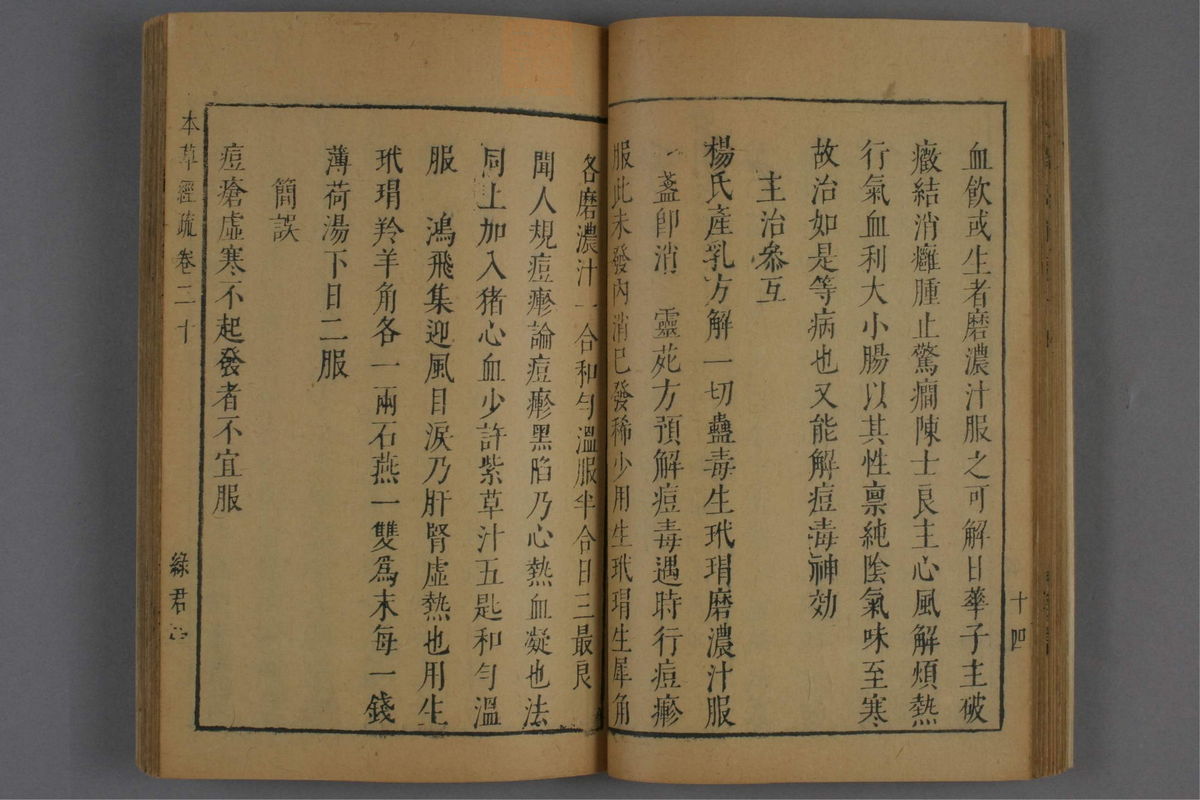 血飲或生者磨濃汁服之可解日華子主破
癥結消癰腫止驚癇陳士良主心風解煩熱
行氣血利大小腸以其性禀純陰氣味至寒
故治如是等病也又能解痘毒神効
主治叅互
楊氏產乳方解一切蠱毒生玳瑁磨濃汁服
一盞卽消　靈苑方預解痘毒遇時行痘瘮
服此未發內消已發稀少用生玳瑁生犀角
各磨濃汁一合和勻溫服半合日三最良
聞人規痘瘮論痘瘮黑陷乃心熱血凝也法
同上加入猪心血少許紫草汁五匙和勻溫
服　鴻飛集迎風目淚乃肝腎虛熱也用生
玳瑁羚羊角各一兩石燕一雙爲末每一錢
薄荷湯下日二服
簡誤
痘瘡虛寒不起發者不宜服
本草經疏 卷二十
綠君
十四